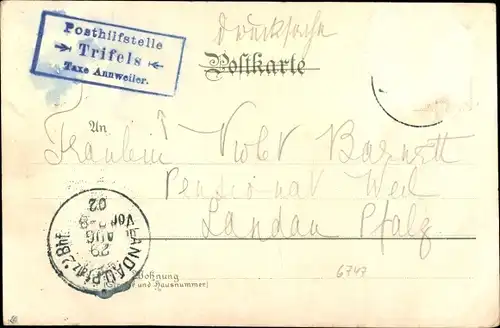 Drucksache
Posthilfstelle
Trifels
Taxe Annweiler.
Postkarte
An
Fräulein Violet Barnett
Pensionat Weil
Landau Pfalz
LANDAU Pfalz 2 Bhf.
29
AUG
Vor 8-9
02
Wohnung
(Straße und Hausnummer)
6747